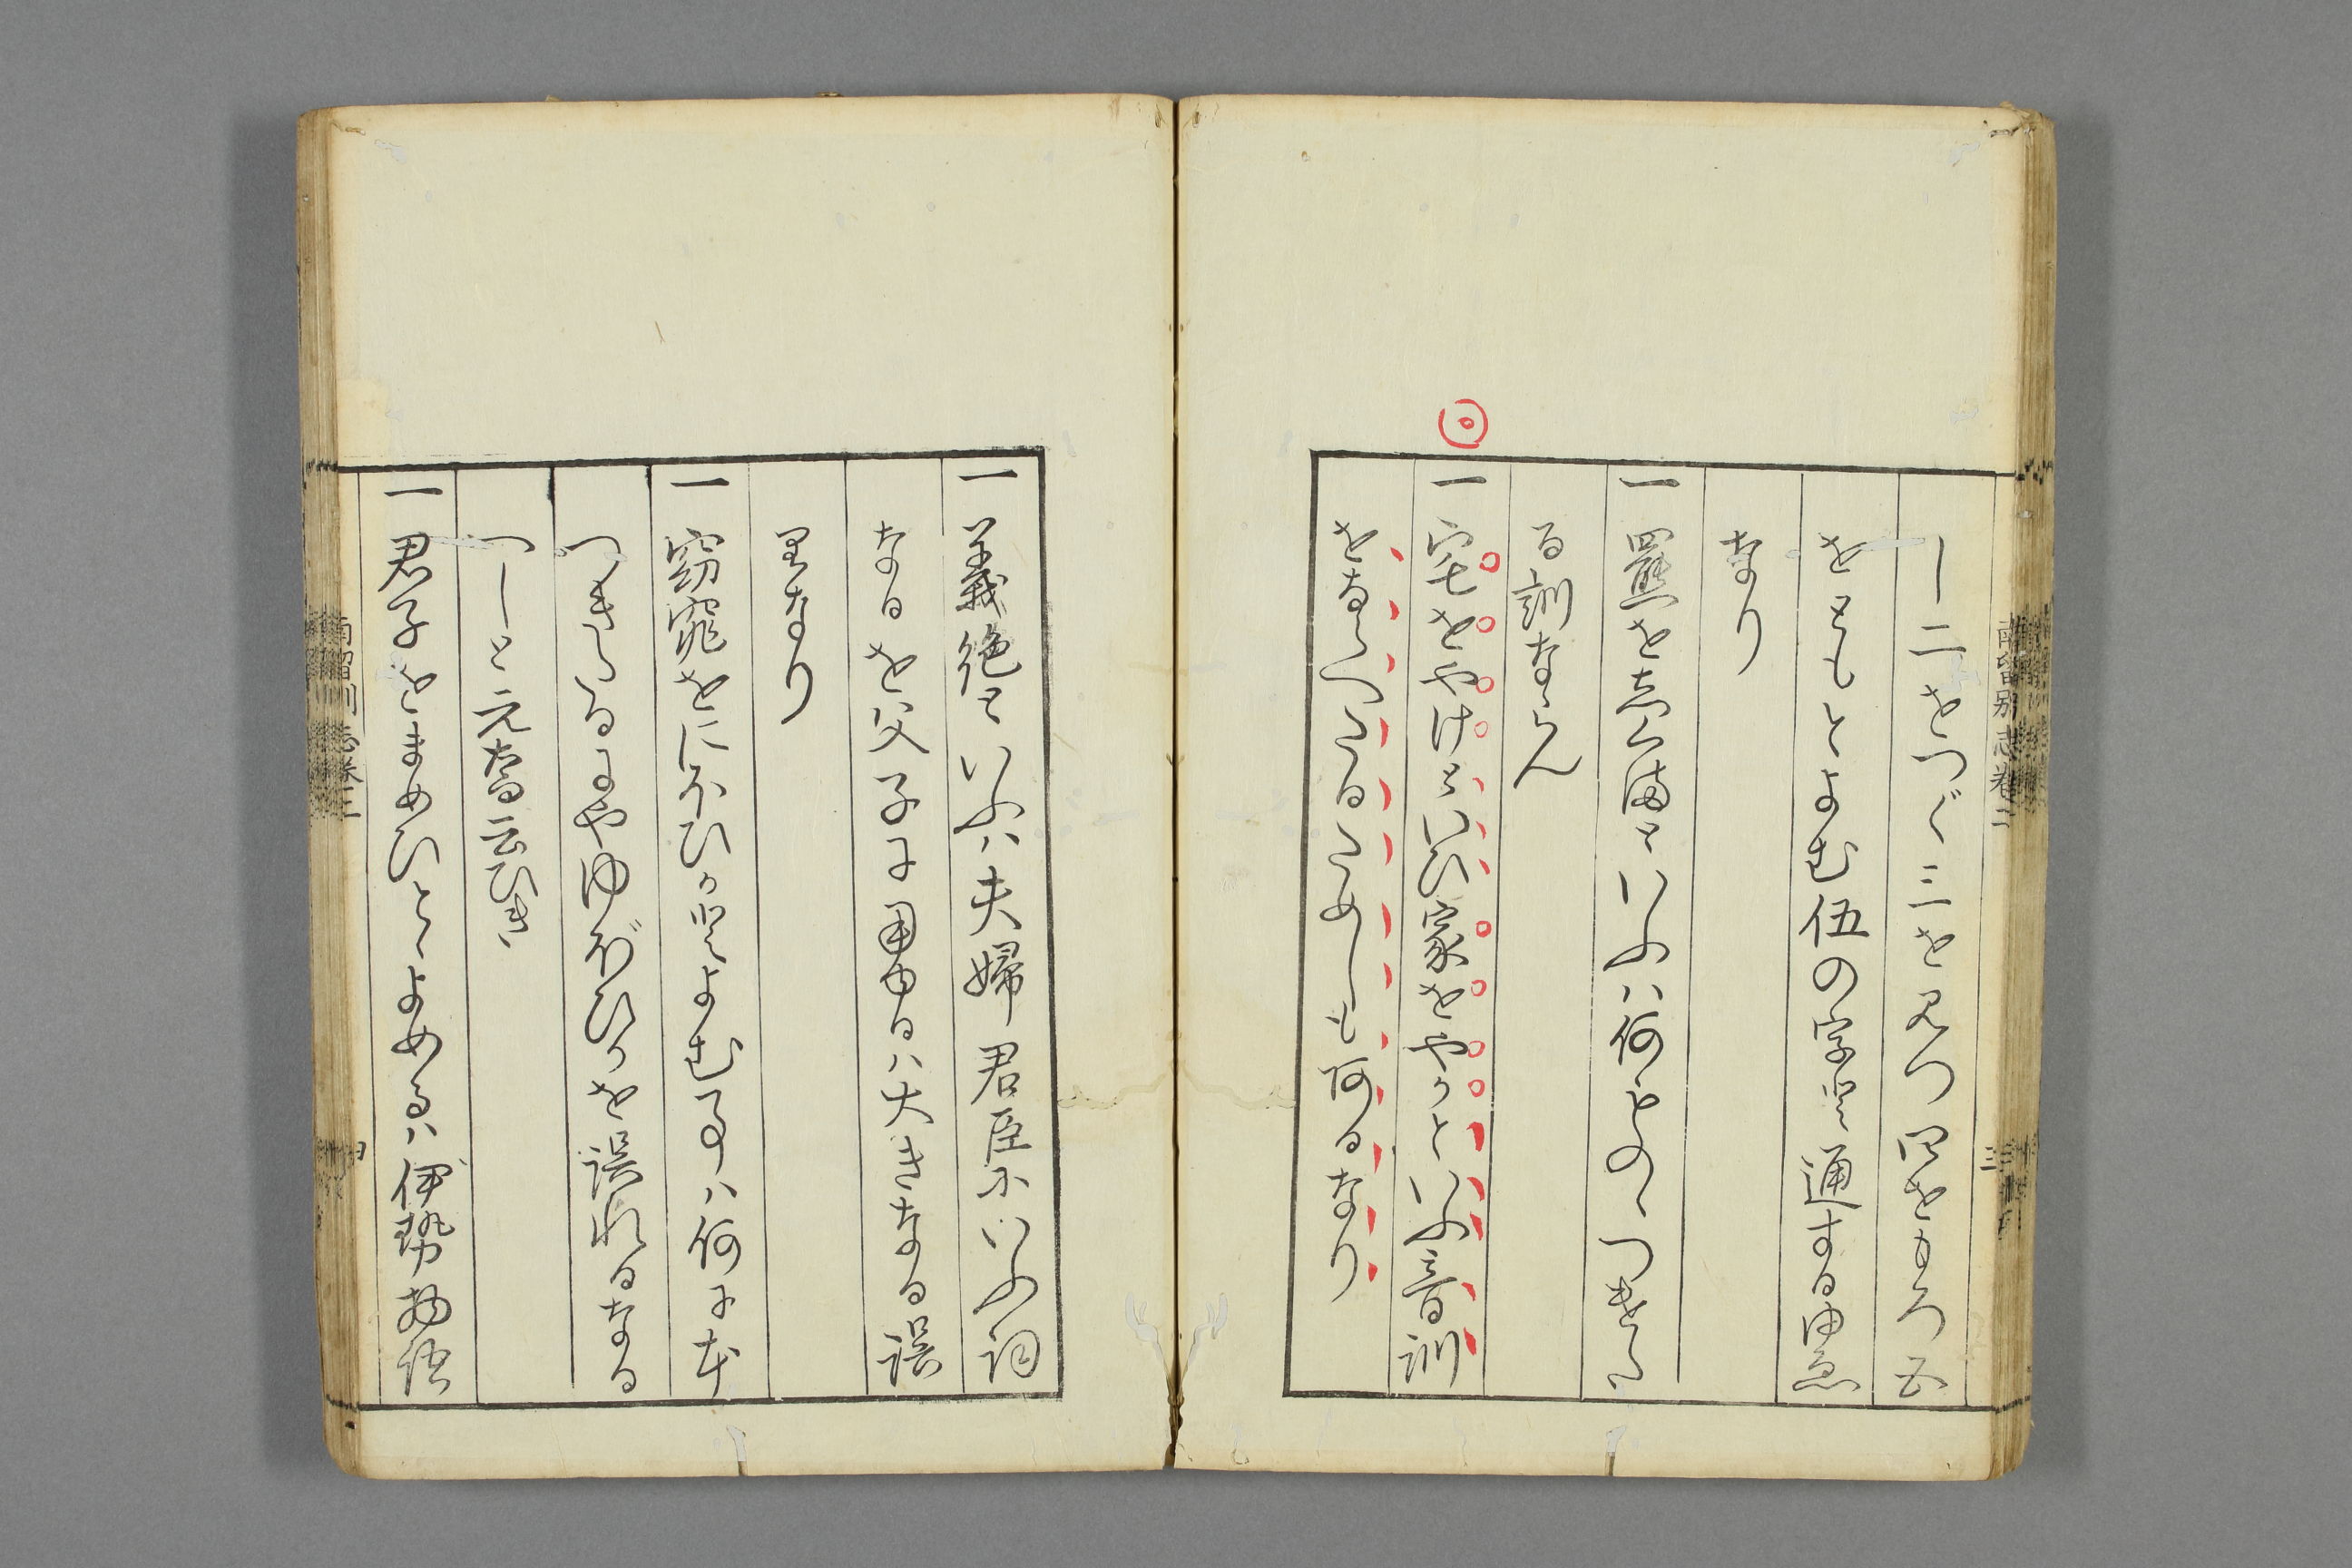 南留別志巻二
三
し二をつぐ三を見つ四をもろ五
をともとよむ伍の字に通するゆゑ
なり
一羆をしくまといふは何ものゝつけた
る訓ならん
一宅をやけといひ家をやかといふ音訓
をならべたるためしも阿るなり
一義絶といふは夫婦君臣にいふ詞
なるを父子に用ゆるは大きなる誤
りなり
一窈窕をにほひかによむ事は何に本
つきたるにやゆほひかを誤れるなる
へしと元喬云ひき
一君子をまめひとゝよめるは伊勢物語
南留別志巻二
四